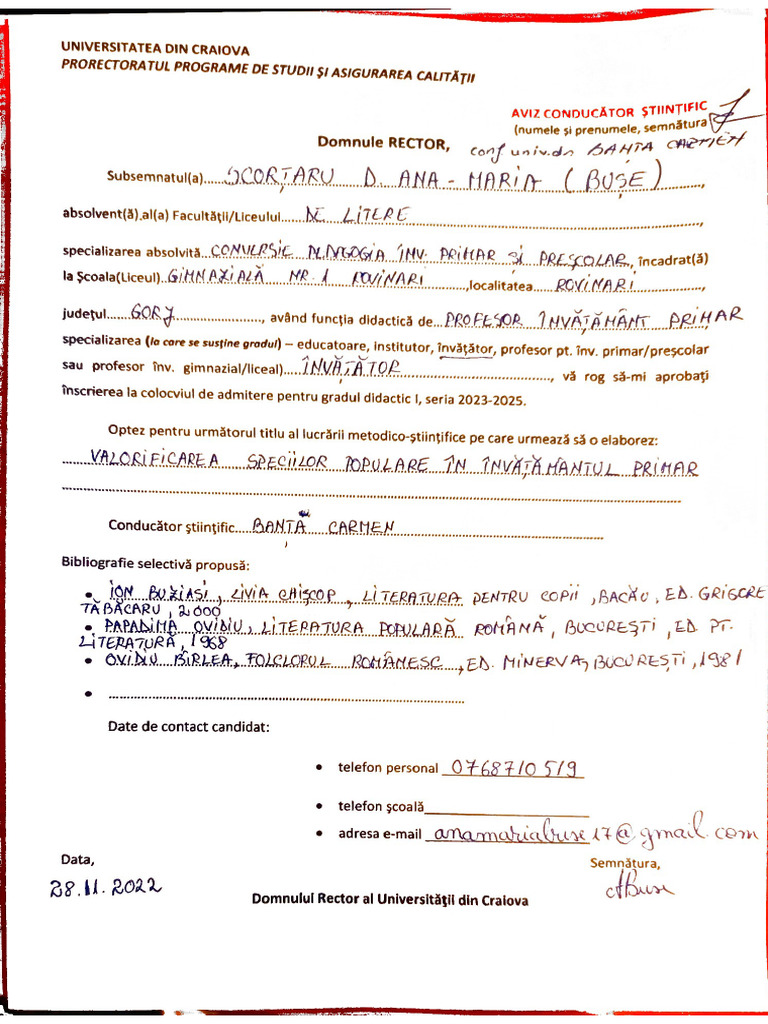 UNIVERSITATEA DIN CRAIOVA
PRORECTORATUL PROGRAME DE STUDII ŞI ASIGURAREA CALITĂŢII
AVIZ CONDUCĂTOR ŞTIINŢIFIC
(numele și prenumele, semnătura
Domnule RECTOR, conf univ. dr BANȚA CARMEN
Subsemnatul(a) SCORȚARU D. ANA-MARIA (BUȘE),
absolvent(ă),al(a) Facultăţii/Liceului DE LITERE,
specializarea absolvită CONVERSIE PEDAGOGIA ÎNV. PRIMAR ȘI PREȘCOLAR, încadrat(ă)
la Şcoala(Liceul) GIMNAZIALĂ NR. 1 ROVINARI, localitatea ROVINARI,
judeţul GORJ, având funcţia didactică de PROFESOR ÎNVĂȚĂMÂNT PRIMAR
specializarea (la care se susţine gradul) – educatoare, institutor, învăţător, profesor pt. înv. primar/preşcolar
sau profesor înv. gimnazial/liceal) ÎNVĂȚĂTOR, vă rog să-mi aprobaţi
înscrierea la colocviul de admitere pentru gradul didactic I, seria 2023-2025.
Optez pentru următorul titlu al lucrării metodico-ştiinţifice pe care urmează să o elaborez:
VALORIFICAREA SPECIILOR POPULARE ÎN ÎNVĂȚĂMÂNTUL PRIMAR
Conducător ştiinţific BANȚA CARMEN
Bibliografie selectivă propusă:
• ION BUZIASI, LIVIA CHIȘCOP, LITERATURA PENTRU COPII, BACĂU, ED. GRIGORE
TĂBĂCARU, 2000
• PAPADIMA OVIDIU, LITERATURA POPULARĂ ROMÂNĂ, BUCUREȘTI, ED. PT.
LITERATURĂ, 1968
• OVIDIU BÎRLEA, FOLCLORUL ROMÂNESC, ED. MINERVA, BUCUREȘTI, 1981
•
Date de contact candidat:
• telefon personal 0768710519
• telefon şcoală
• adresa e-mail anamariabuse17@gmail.com
Data,
Semnătura,
28.11.2022
ABuse
Domnului Rector al Universităţii din Craiova